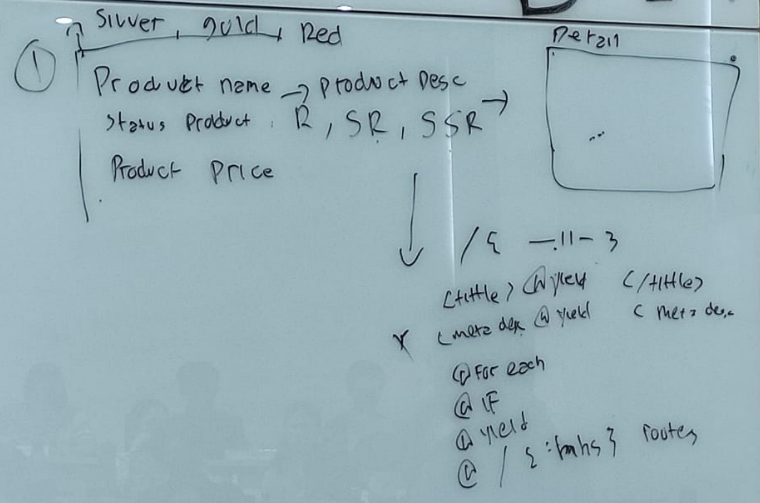 Silver, gold, Red
①
Product name → Product Desc
Status Product : R, SR, SSR →
Product Price
Detail
/ {
<tittle> @yield </tittle>
<meta desc @yield < meta desc
@For each
@IF
@yield
@ / { } routes